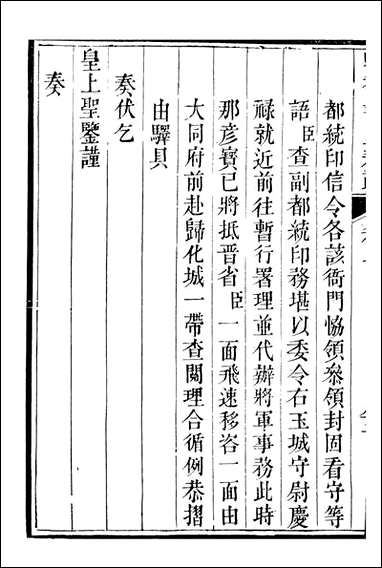 都統印信令各該衙門恊領叅領封固看守等
語臣查副都統印務堪以委令右玉城守尉慶
祿就近前往暫行署理並代辦將軍事務此時
那彦寳已將抵晉省臣一面飛速移咨一面由
大同府前赴歸化城一帶查閱理合循例恭摺
由驛具
奏伏乞
皇上聖鑒謹
奏